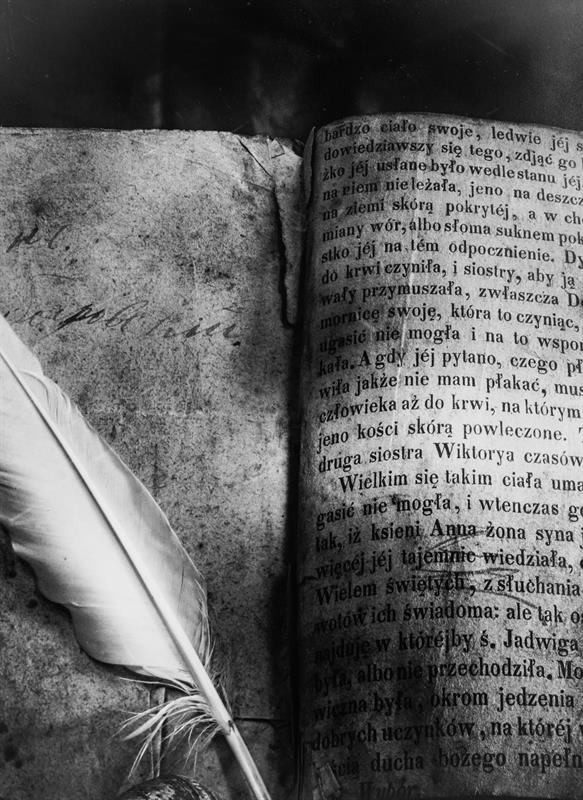 bardzo ciało swoje, ledwie jéj s
dowiedziawszy się tego, zdjąć go
żko jéj usłane było wedle stanu jéj
na niem nie leżała, jeno na deszcz
na ziemi skórą pokrytéj, a w ch
miany wór, albo słoma suknem pok
stko jéj na tém odpocznienie. Dy
do krwi czyniła, i siostry, aby ją
wały przymuszała, zwłaszcza D
mornicę swoję, która to czyniąc,
ugasić nie mogła i na to wspor
kała. A gdy jéj pytano, czego pł
wiła jakże nie mam płakać, mus
człowieka aż do krwi, na którym
jeno kości skórą powleczone. T
druga siostra Wiktorya czasów
Wielkim się takim ciała uma
gasić nie mogła, i wtenczas go
tak, iż ksieni Anna żona syna
więcéj jéj tajemnic wiedziała,
Wielem świętych, z słuchania
wotów ich świadoma: ale tak os
najduję w któréjby ś. Jadwiga
była, albo nie przechodziła. Mo
wiczna była, okrom jedzenia
dobrych uczynków, na któréj
ducha bożego napełn